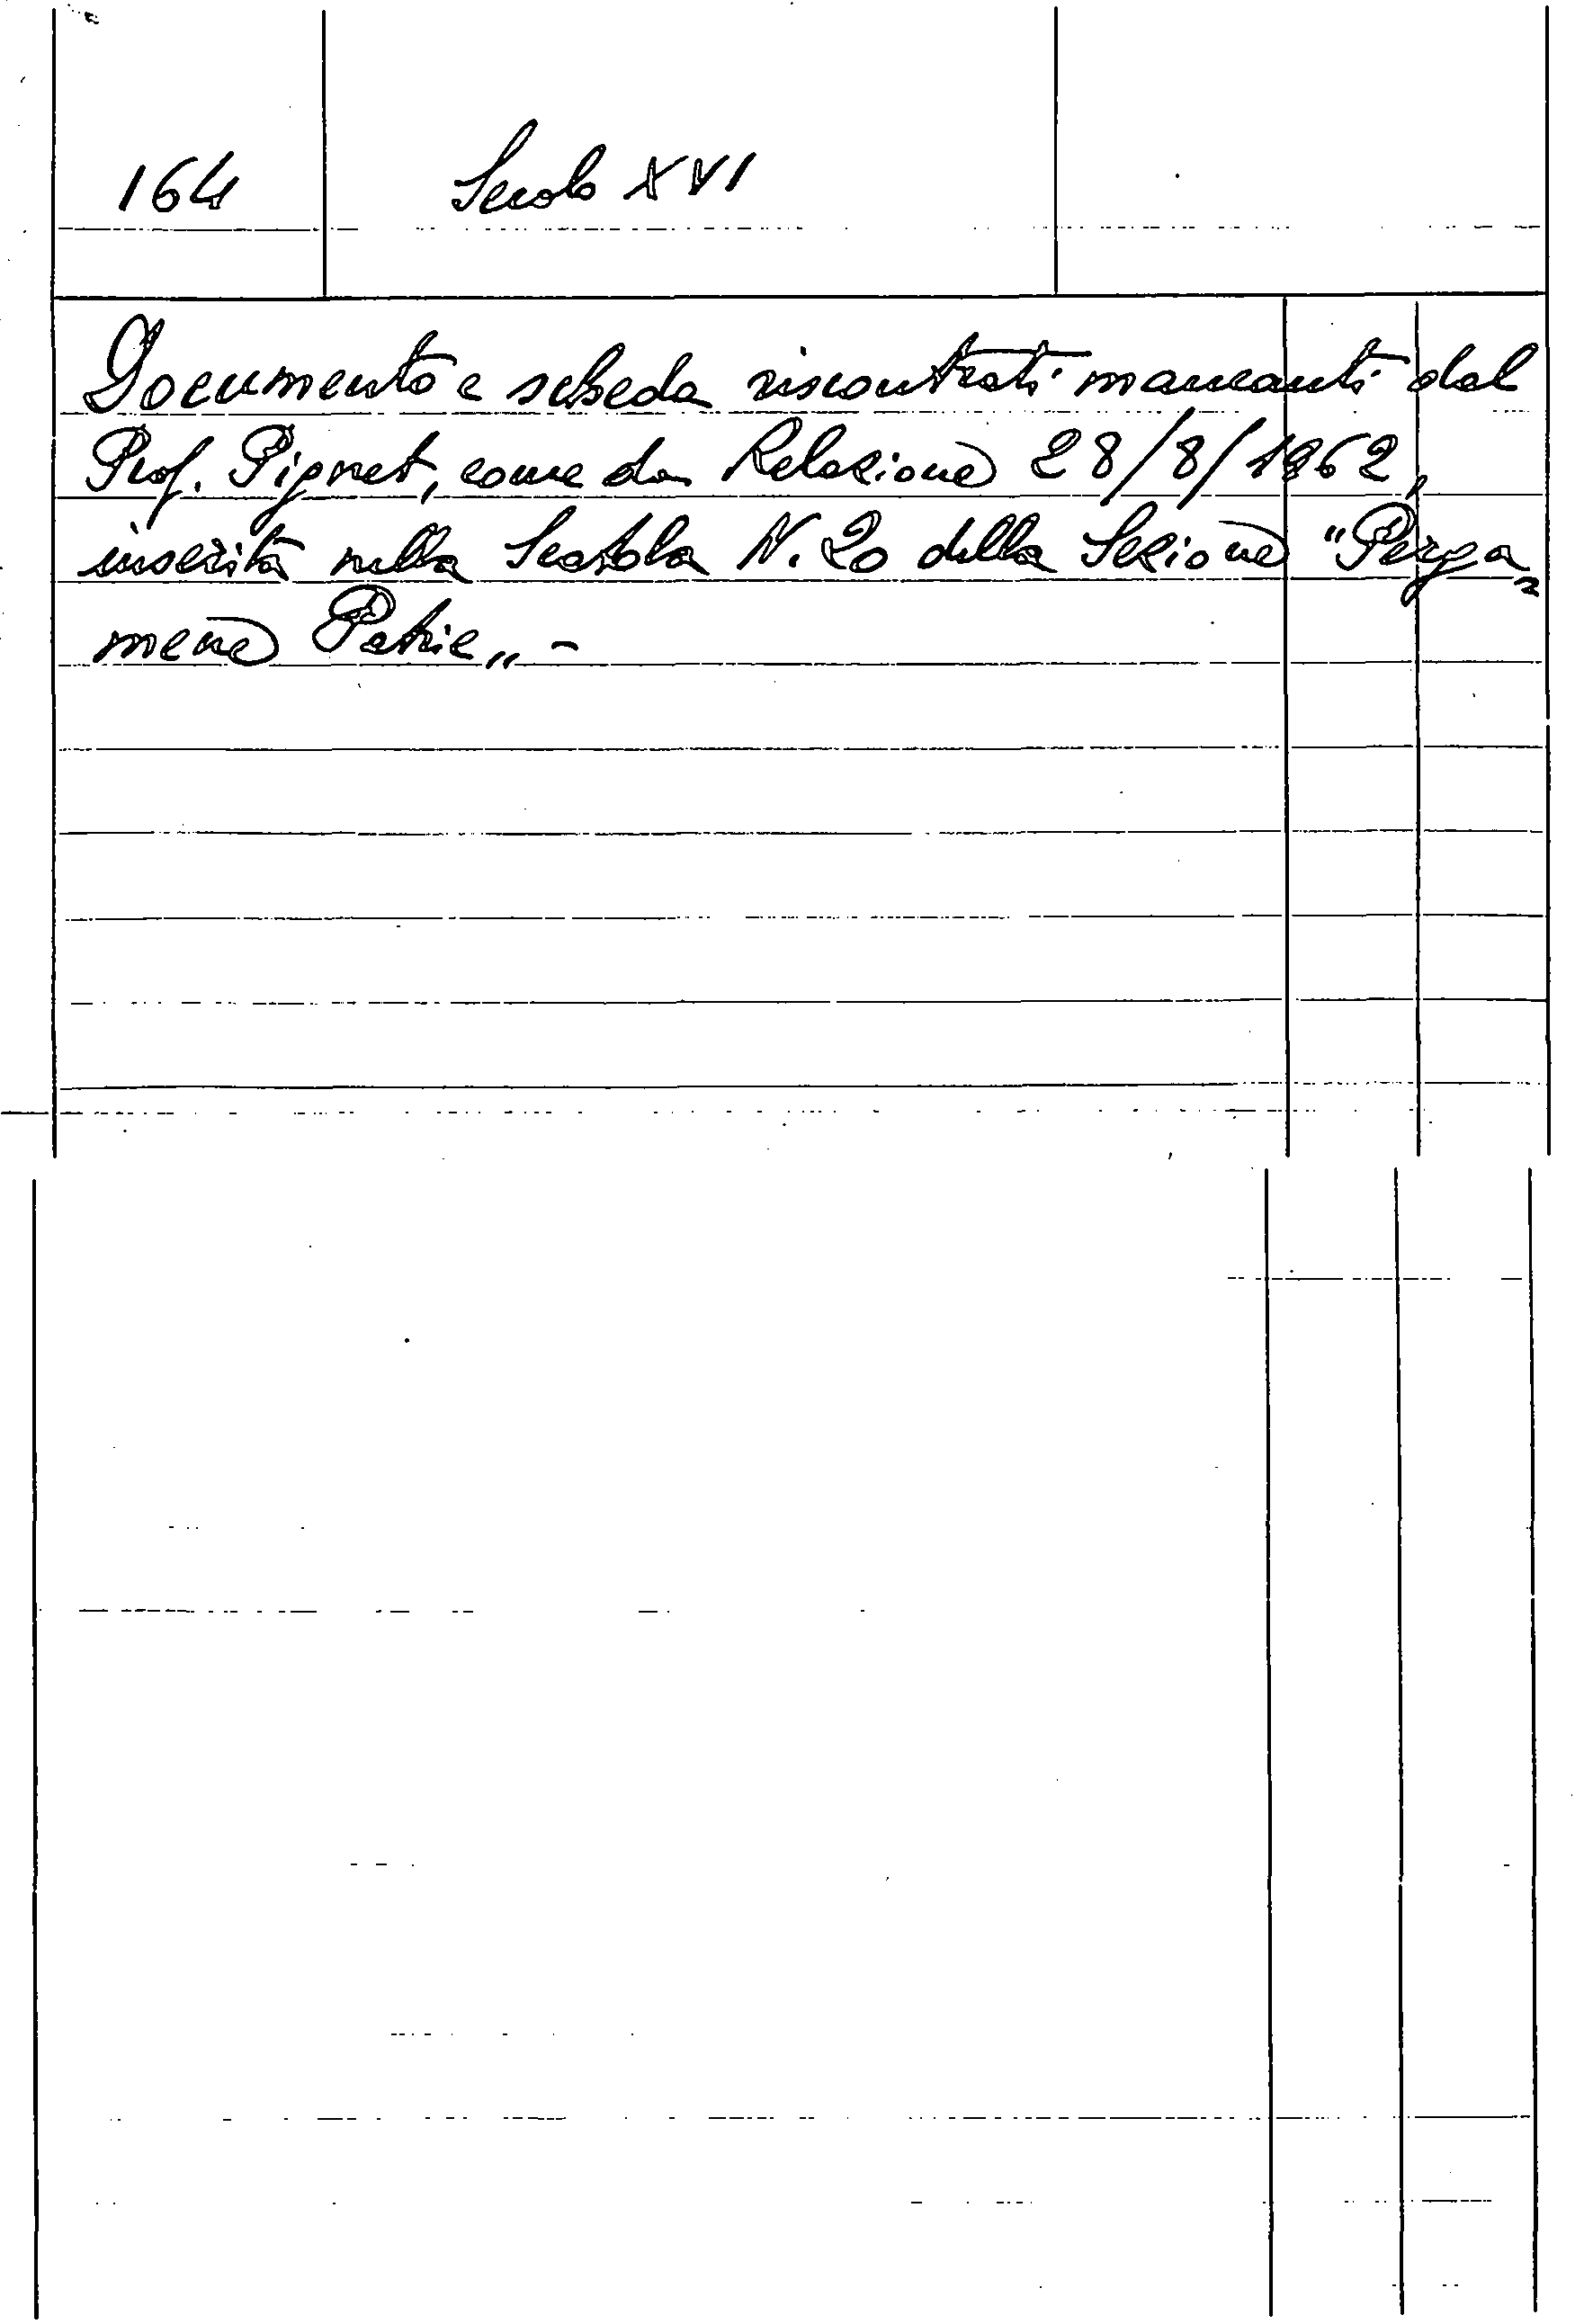 164 Secolo XVI
Documento e scheda riscontrati mancanti dal
Prof. Pignet, come da Relazione 28/8/1962,
inserita nella Scatola N. 20 della Sezione "Perga=
mene Patrie„ -